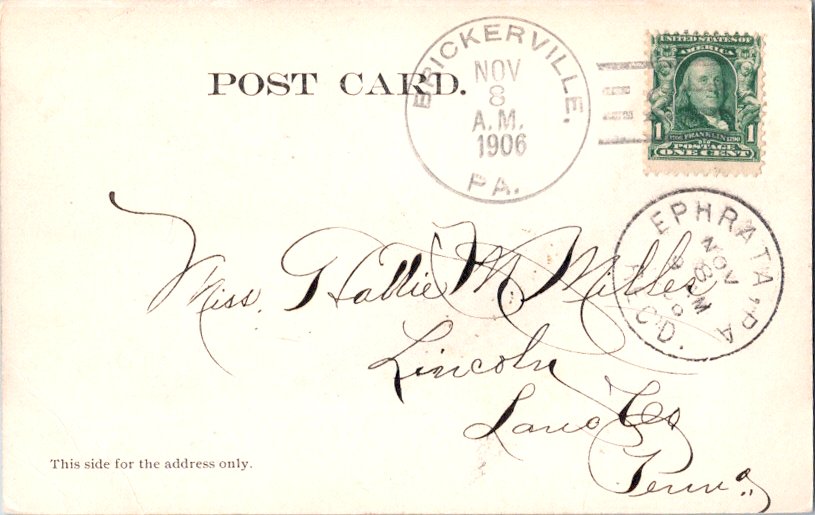 POST CARD.
BRICKERVILLE,
NOV
8
A.M.
1906
PA.
UNITED STATES OF
AMERICA
1 1
FRANKLIN
POSTAGE
ONE CENT
EPHRATA, PA
NOV
8
REC'D.
Miss. Hallie M Miller
Lincoln
Lanc Co
Penna.
This side for the address only.